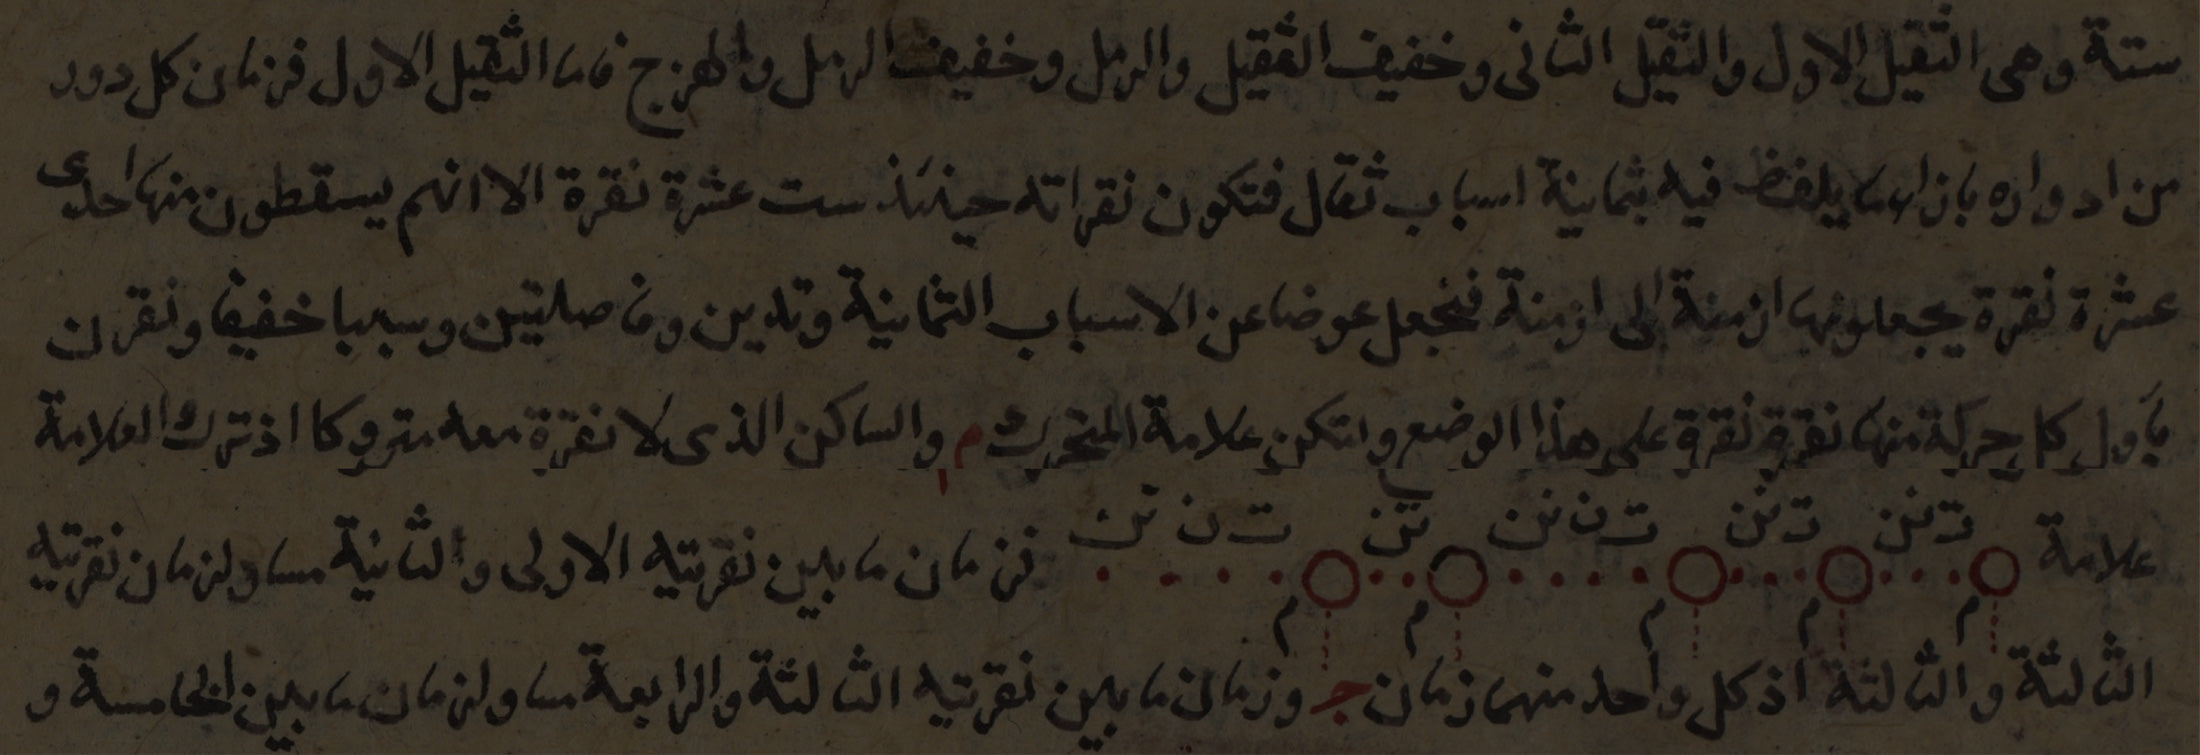 ستة وهى الثقيل الاول والثقيل الثانى وخفيف الثقيل والرمل وخفيف الرمل والهزج فاما الثقيل الاول فزمان كل دور
من ادواره بازاء ما يلفظ فيه بثمانية اسباب ثقال فتكون نقراته حينئذ ست عشرة نقرة الا انهم يسقطون منها احدى
عشرة نقرة يجعلونها ازمنة الى ازمنة فنجعل عوضا عن الاسباب الثمانية وتدين وفاصلتين وسببا خفيفا ونقرن
باول كل حركة منها نقرة نقرة على هذا الوضع ولتكن علامة المتحرك م والساكن الذى لا نقرة معه متروكا اذ ترك العلامة
علامة تنن تنن ت ن نن تن ت ن تن فزمان ما بين نقرتيه الاولى والثانية مساو لزمان نقرتيه
م م م م م
الثالثة والثالثة اذ كل واحد منهما زمان ج وزمان ما بين نقرتيه الثالثة والرابعة مساو لزمان ما بين الخامسة و